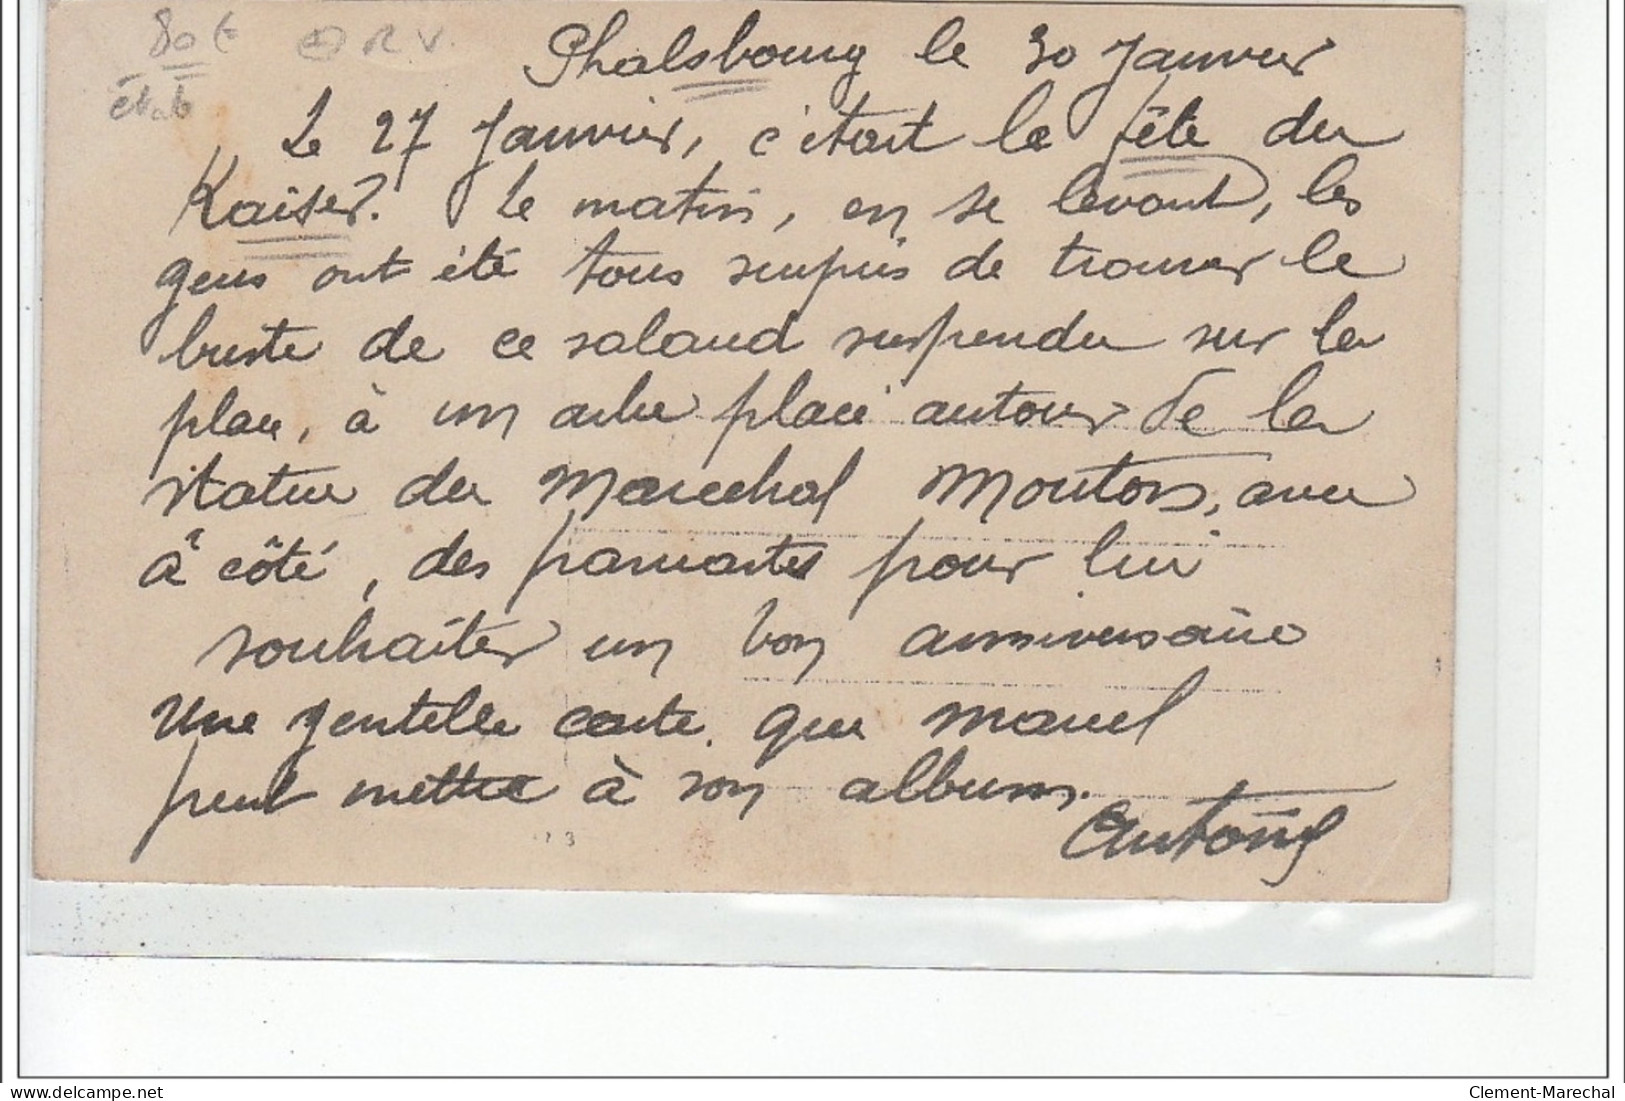 80 €
R V.
état
Phalsbourg le 30 Janvier
Le 27 Janvier, c'était la fête du
Kaiser. Le matin, en se levant, les
gens ont été tous surpris de trouver le
buste de ce salaud suspendu sur la
place, à un arbre placé autour de la
statue du Marechal Mouton, avec
à côté, des pancartes pour lui
souhaiter un bon anniversaire
Une gentille carte que Marcel
peut mettre à son album.
Antony
Clement-Marechal